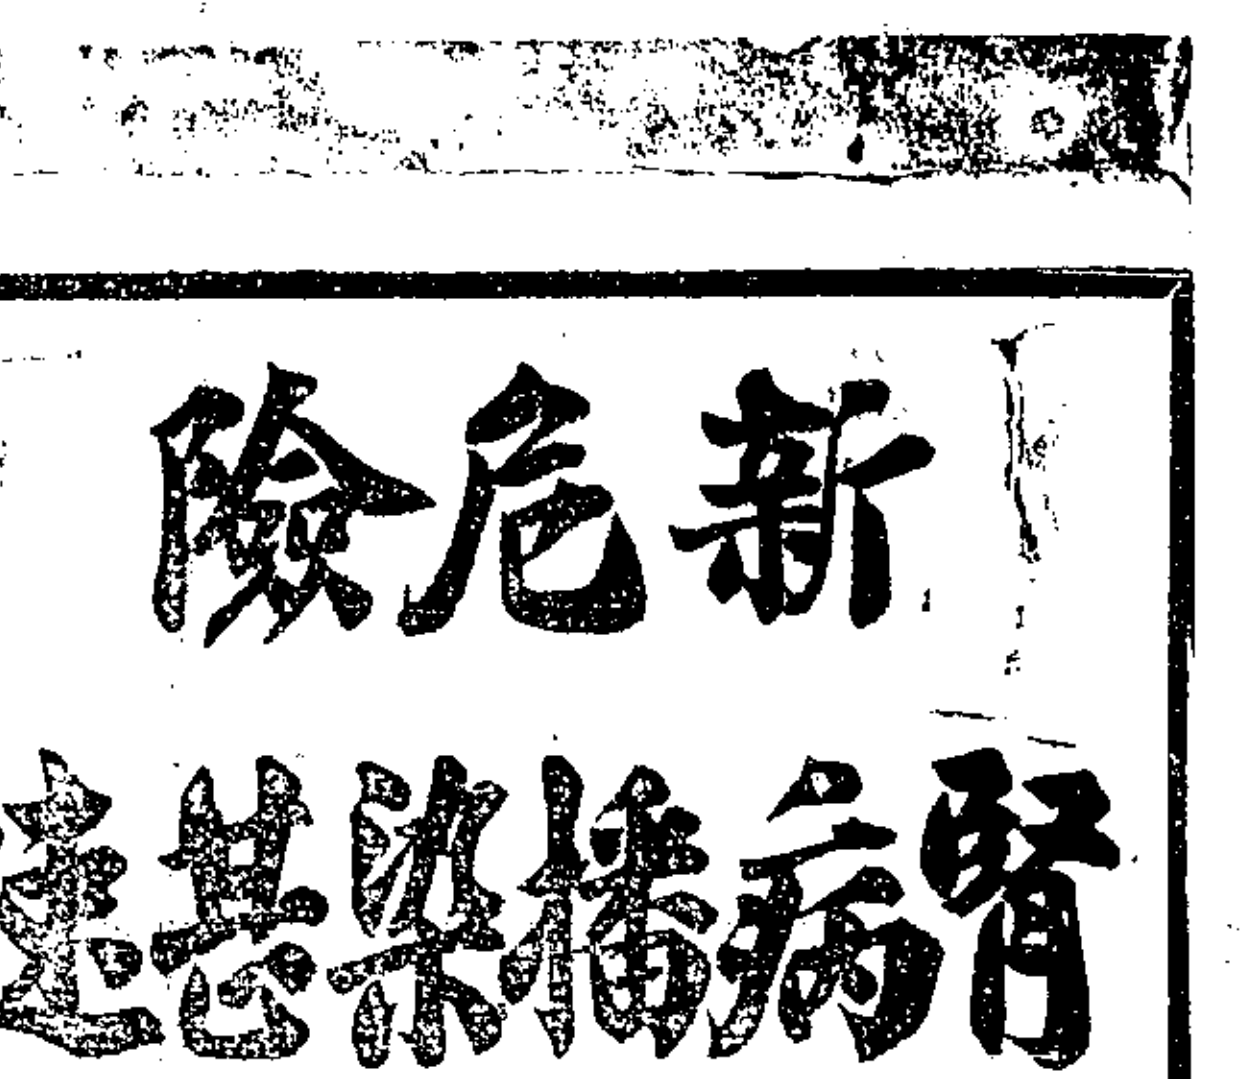 新危險
腎病播染甚速